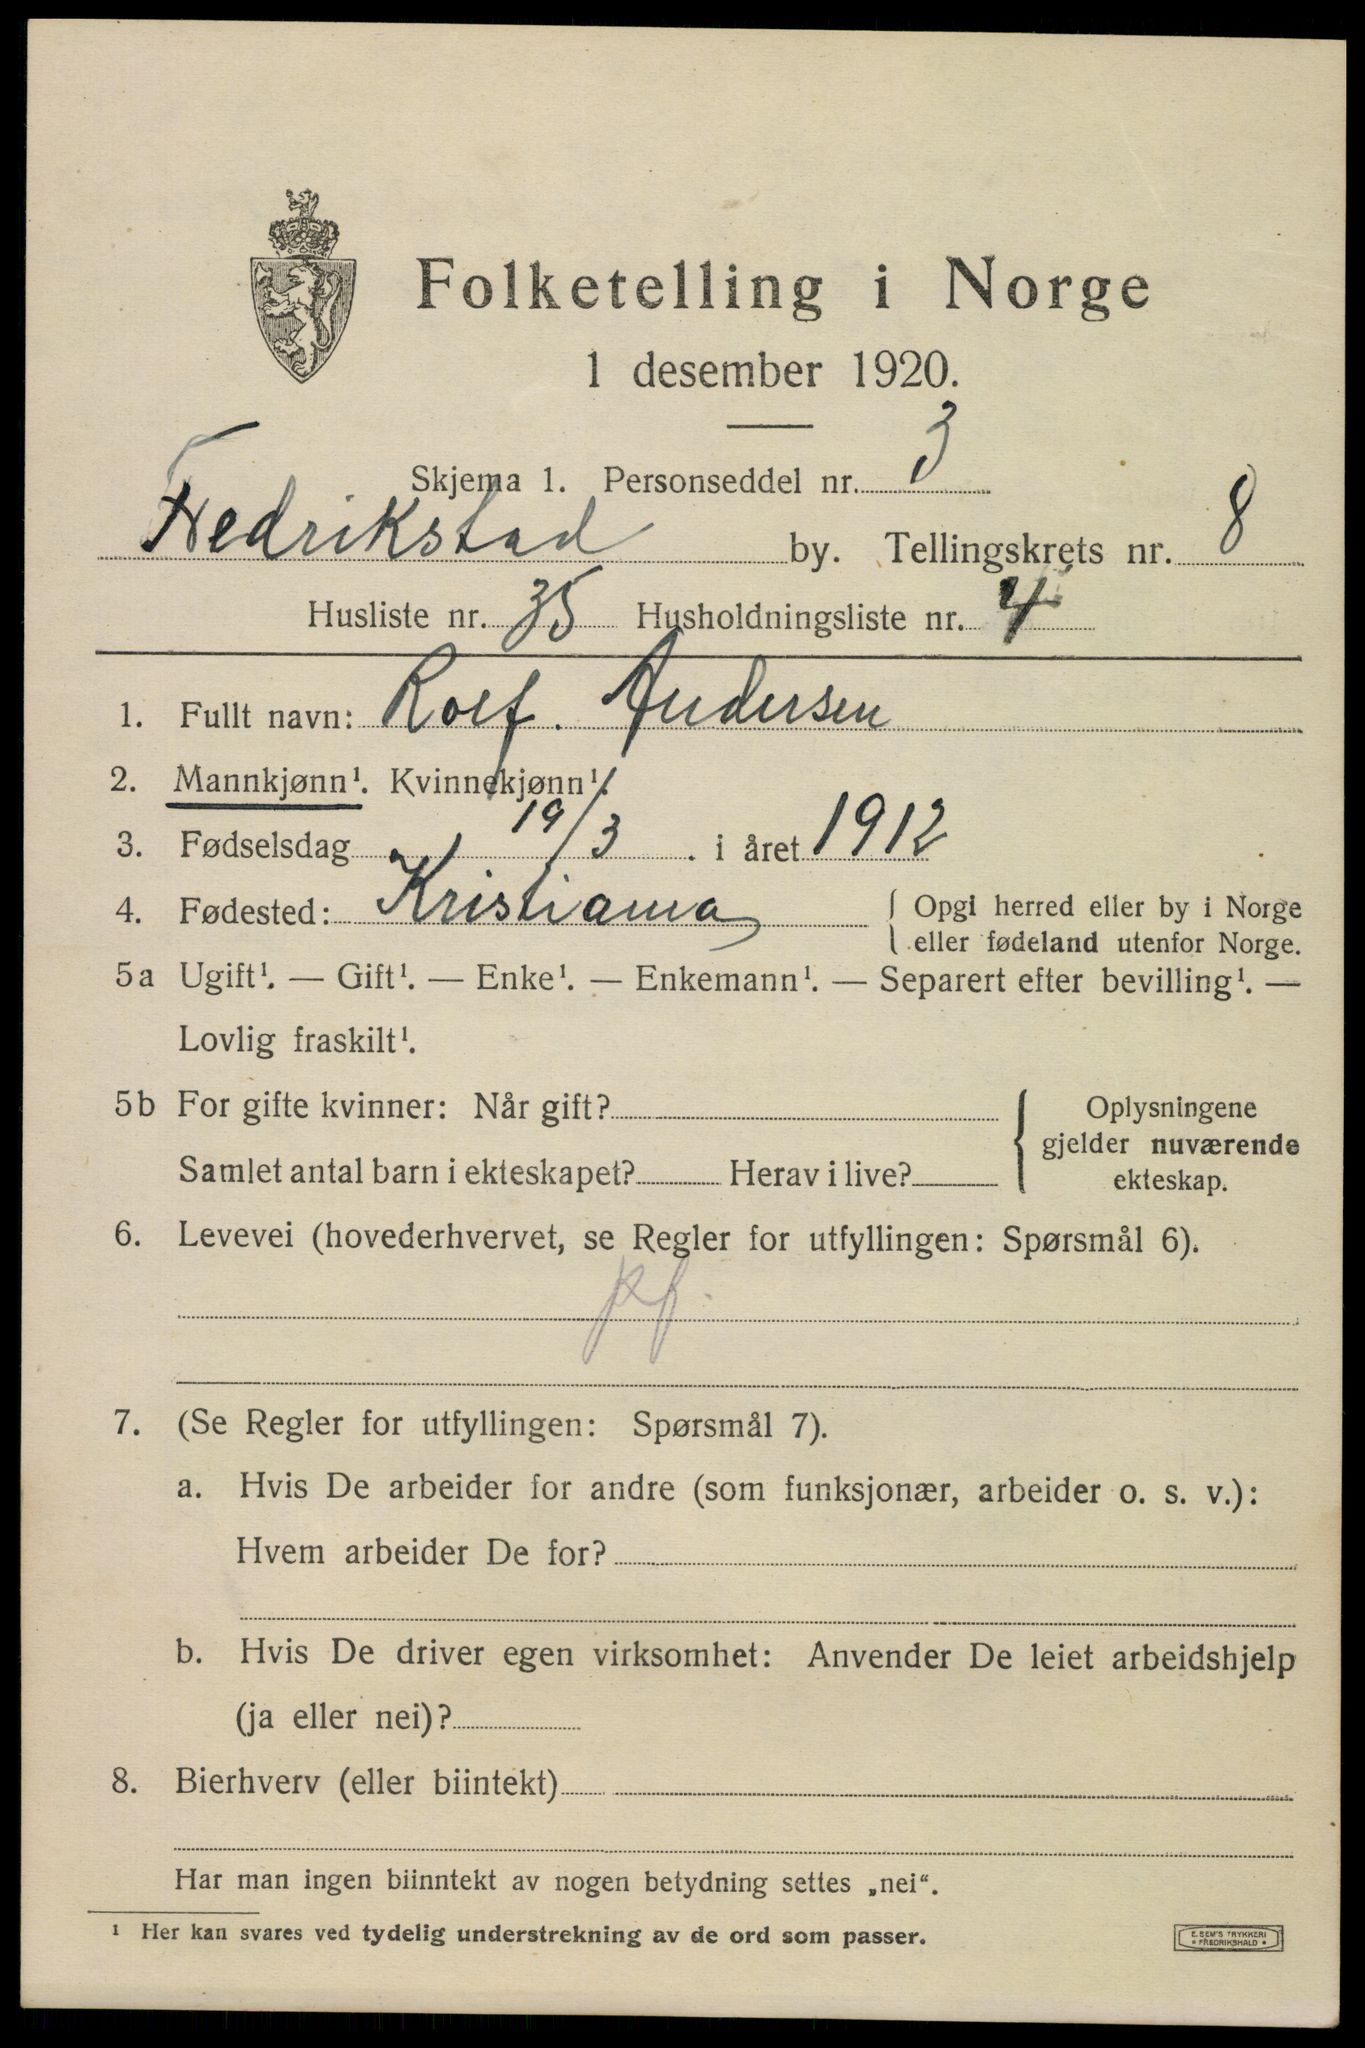 Folketelling i Norge
1 desember 1920.
Skjema 1. Personseddel nr. 3
Fredrikstad by. Tellingskrets nr. 8
Husliste nr. 35 Husholdningsliste nr. 4
1. Fullt navn: Rolf. Andersen
2. Mannkjønn¹. Kvinnekjønn¹.
3. Fødselsdag 19/3 . i året 1912
4. Fødested: Kristiania { Opgi herred eller by i Norge
eller fødeland utenfor Norge.
5a Ugift¹. — Gift¹. — Enke¹. — Enkemann¹. — Separert efter bevilling¹. —
Lovlig fraskilt¹.
5b For gifte kvinner: Når gift? { Oplysningene
gjelder nuværende
Samlet antal barn i ekteskapet? Herav i live? ekteskap.
6. Levevei (hovederhvervet, se Regler for utfyllingen: Spørsmål 6).
pf.
7. (Se Regler for utfyllingen: Spørsmål 7).
a. Hvis De arbeider for andre (som funksjonær, arbeider o. s. v.):
Hvem arbeider De for?
b. Hvis De driver egen virksomhet: Anvender De leiet arbeidshjelp
(ja eller nei)?
8. Bierhverv (eller biintekt)
Har man ingen biinntekt av nogen betydning settes „nei“.
¹ Her kan svares ved tydelig understrekning av de ord som passer.
E. SEM'S TRYKKERI
* FREDRIKSHALD *